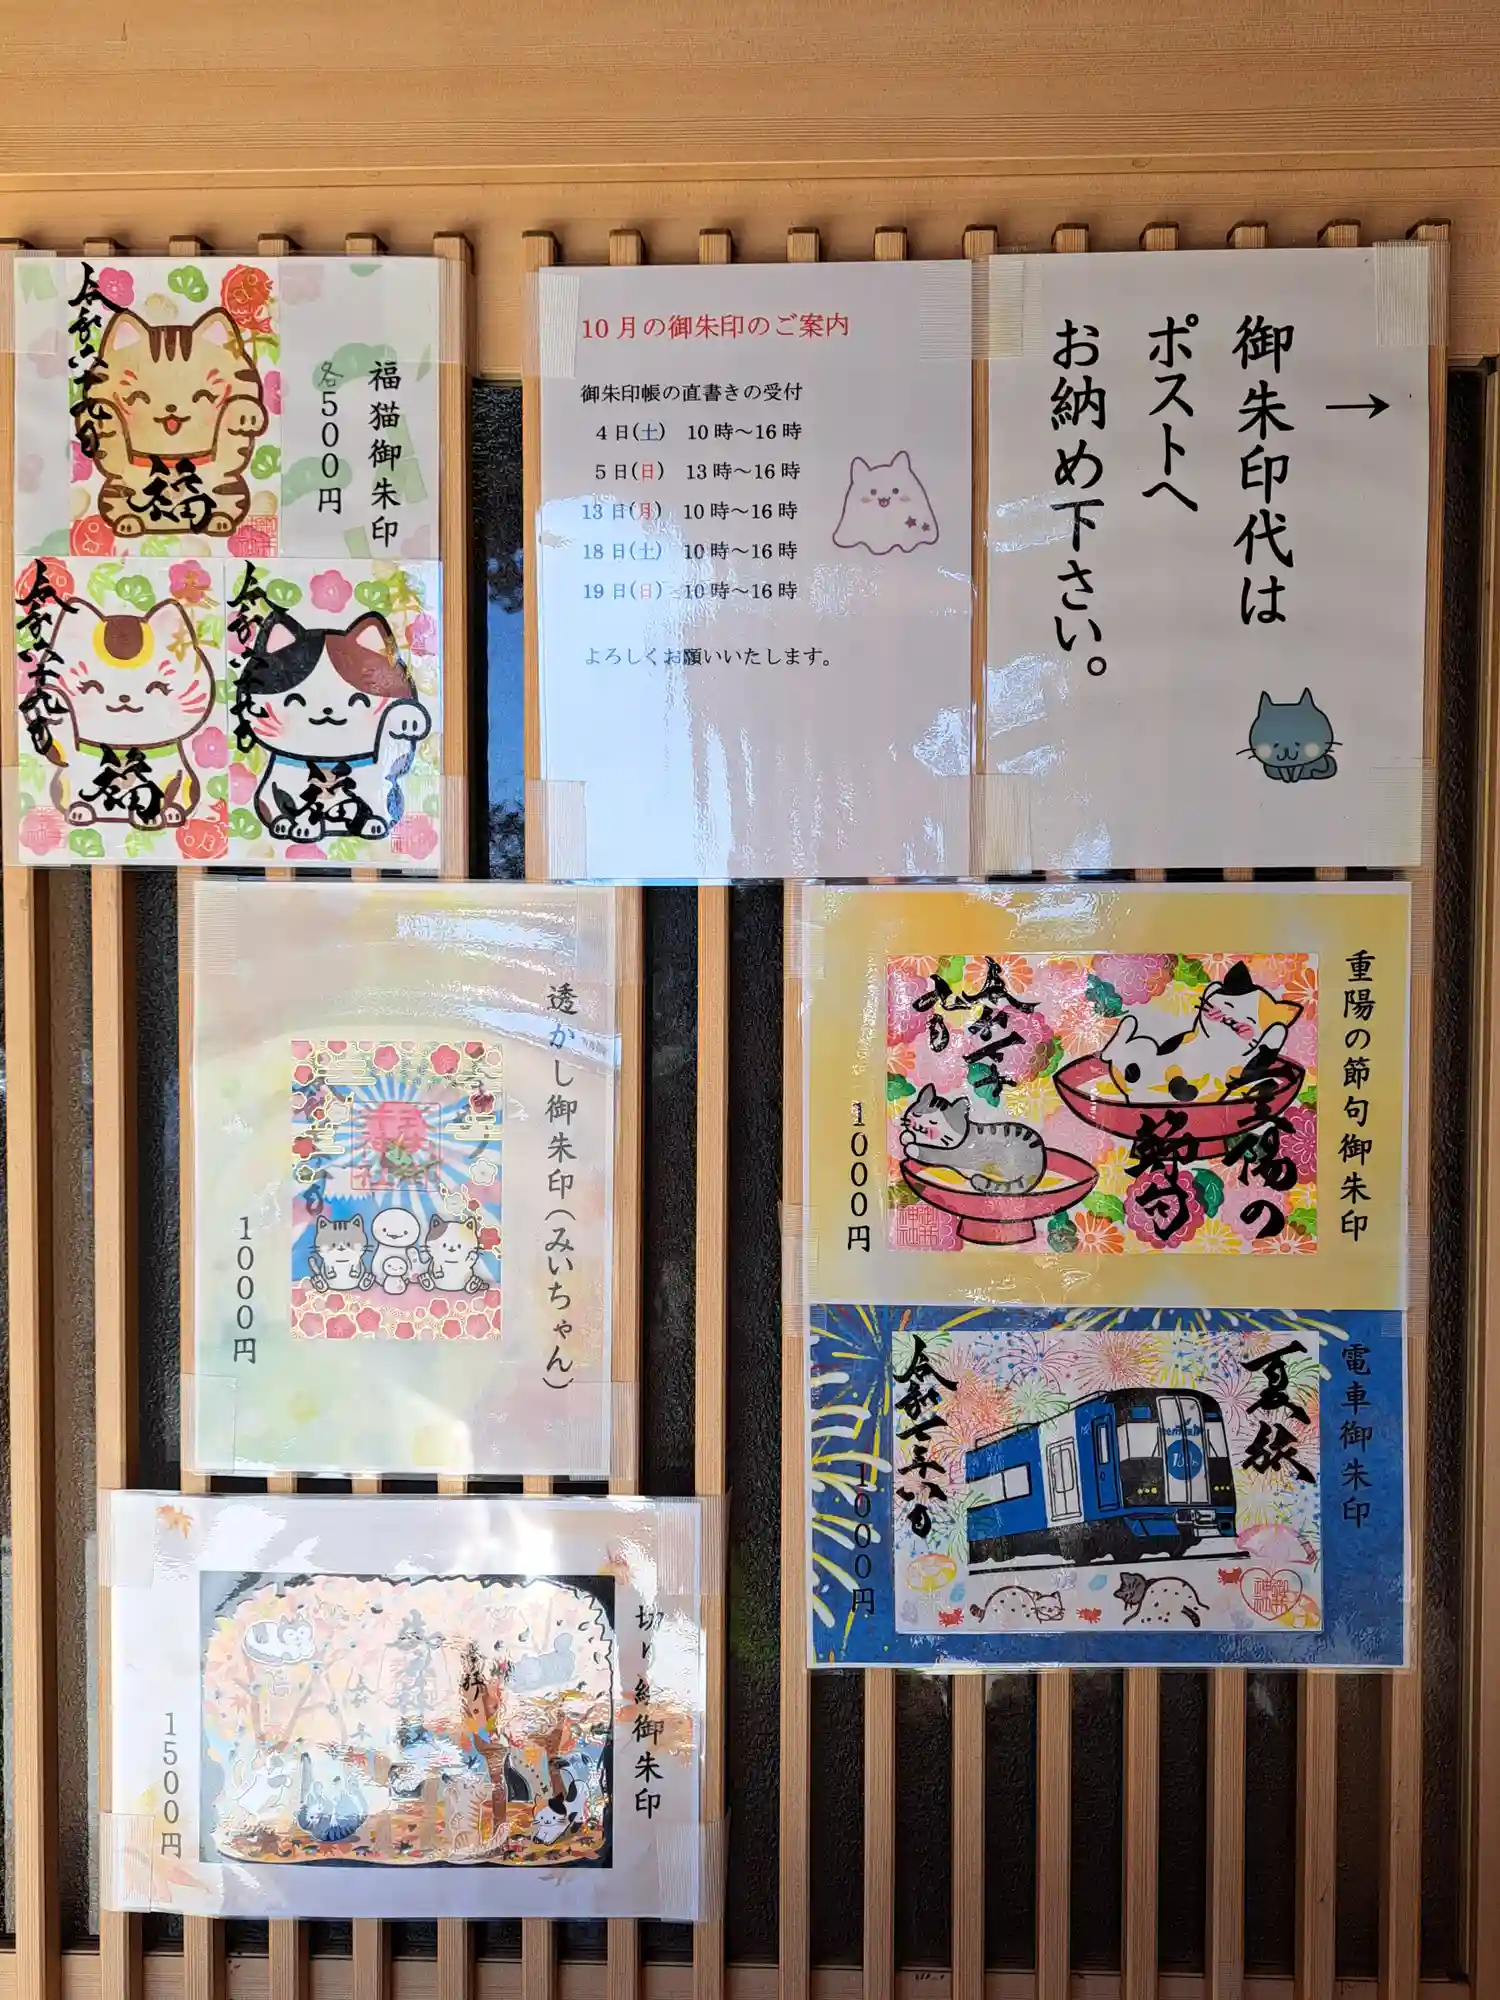 福猫御朱印
各500円
令和六年九月
福
福
福
10月の御朱印のご案内
御朱印帳の直書きの受付
4日(土) 10時～16時
5日(日) 13時～16時
13日(月) 10時～16時
18日(土) 10時～16時
19日(日) 10時～16時
よろしくお願いいたします。
→
御朱印代は
ポストへ
お納め下さい。
透かし御朱印(みいちゃん)
1000円
重陽の節句御朱印
1000円
重陽の
節句
電車御朱印
1000円
夏詣
令和七年八月
切り絵御朱印
1500円